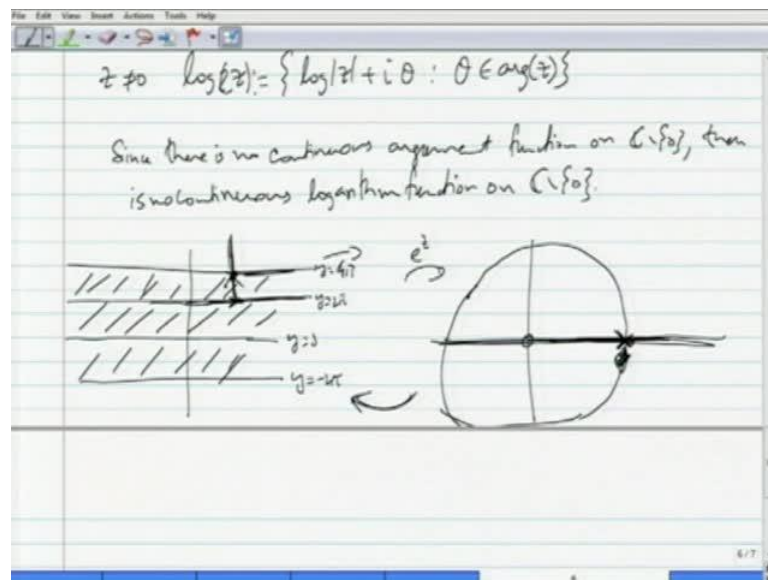 File Edit View Insert Actions Tools Help
z≠0 log(z):= { log|z| + i θ : θ ∈ arg(z)}
Since there is no continuous argument function on ℂ\{0}, there
is no continuous logarithm function on ℂ\{0}.
e^z
y=4π
y=2π
y=0
y=-2π
6/7